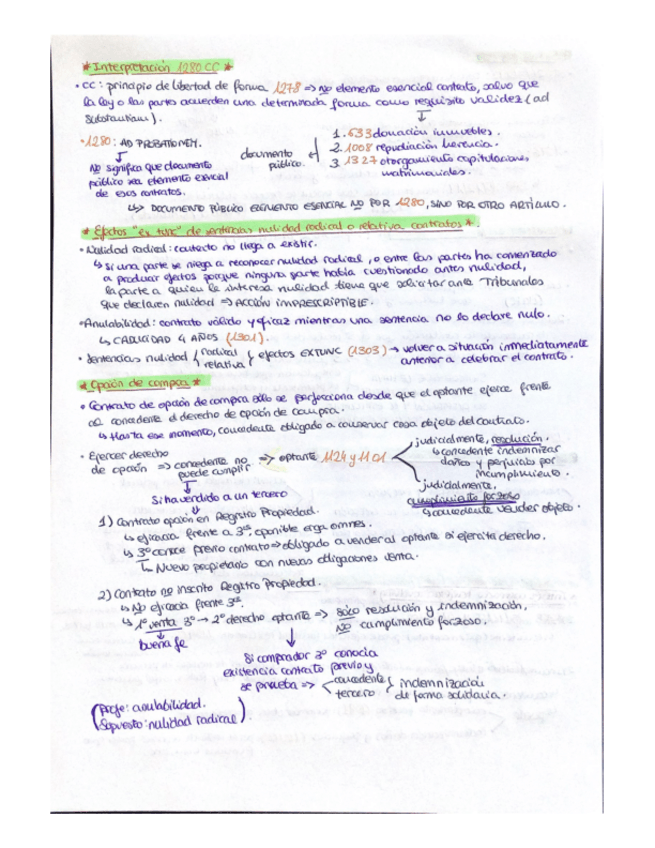 * Interpretación 1280 CC *
• CC: principio de libertad de forma 1278 => no elemento esencial contrato, salvo que
la ley o las partes acuerden una determinada forma como requisito validez (ad
substantiam).
• 1280: AD PROBATIONEM.
No significa que documento
público sea elemento esencial
de esos contratos.
documento
público.
1. 633 donación inmuebles.
2. 1008 repudiación herencia.
3. 1327 otorgamiento capitulaciones
matrimoniales.
↳ DOCUMENTO PÚBLICO ELEMENTO ESENCIAL NO POR 1280, SINO POR OTRO ARTÍCULO.
* Efectos "ex tunc" de sentencias nulidad radical o relativa contratos *
• Nulidad radical: contrato no llega a existir.
↳ si una parte se niega a reconocer nulidad radical, o entre las partes ha comenzado
a producir efectos porque ninguna parte había cuestionado antes nulidad,
la parte a quien le interesa nulidad tiene que solicitar ante Tribunales
que declaren nulidad => ACCIÓN IMPRESCRIPTIBLE.
• Anulabilidad: contrato válido y eficaz mientras una sentencia no lo declare nulo.
↳ CADUCIDAD 4 AÑOS (1301).
• Sentencias nulidad { radical relativa { efectos EXTUNC (1303) → volver a situación inmediatamente
anterior a celebrar el contrato.
* Opción de compra *
• Contrato de opción de compra sólo se perfecciona desde que el optante ejerce frente
al concedente el derecho de opción de compra.
↳ Hasta ese momento, concedente obligado a conservar cosa objeto del contrato.
• Ejercer derecho
de opción => concedente no
puede cumplir
=> optante 1124 y 1101
judicialmente, resolución.
↳ concedente indemnizar
daños y perjuicios por
incumplimiento.
judicialmente,
cumplimiento forzoso
↳ concedente vender objeto.
Si ha vendido a un tercero
1) Contrato opción en Registro Propiedad.
↳ eficacia frente a 3ºs, oponible erga omnes.
↳ 3º conoce previo contrato => obligado a vender al optante si ejercita derecho.
↳ Nuevo propietario con nuevas obligaciones venta.
2) Contrato no inscrito Registro Propiedad.
↳ No eficacia frente 3ºs.
↳ 1º venta 3º → 2º derecho optante => sólo resolución y indemnización,
NO cumplimiento forzoso.
buena fe
Si comprador 3º conocía
existencia contrato previo y
se prueba => concedente tercero { indemnización
de forma solidaria.
(Profe: anulabilidad.
Supuesto: nulidad radical).